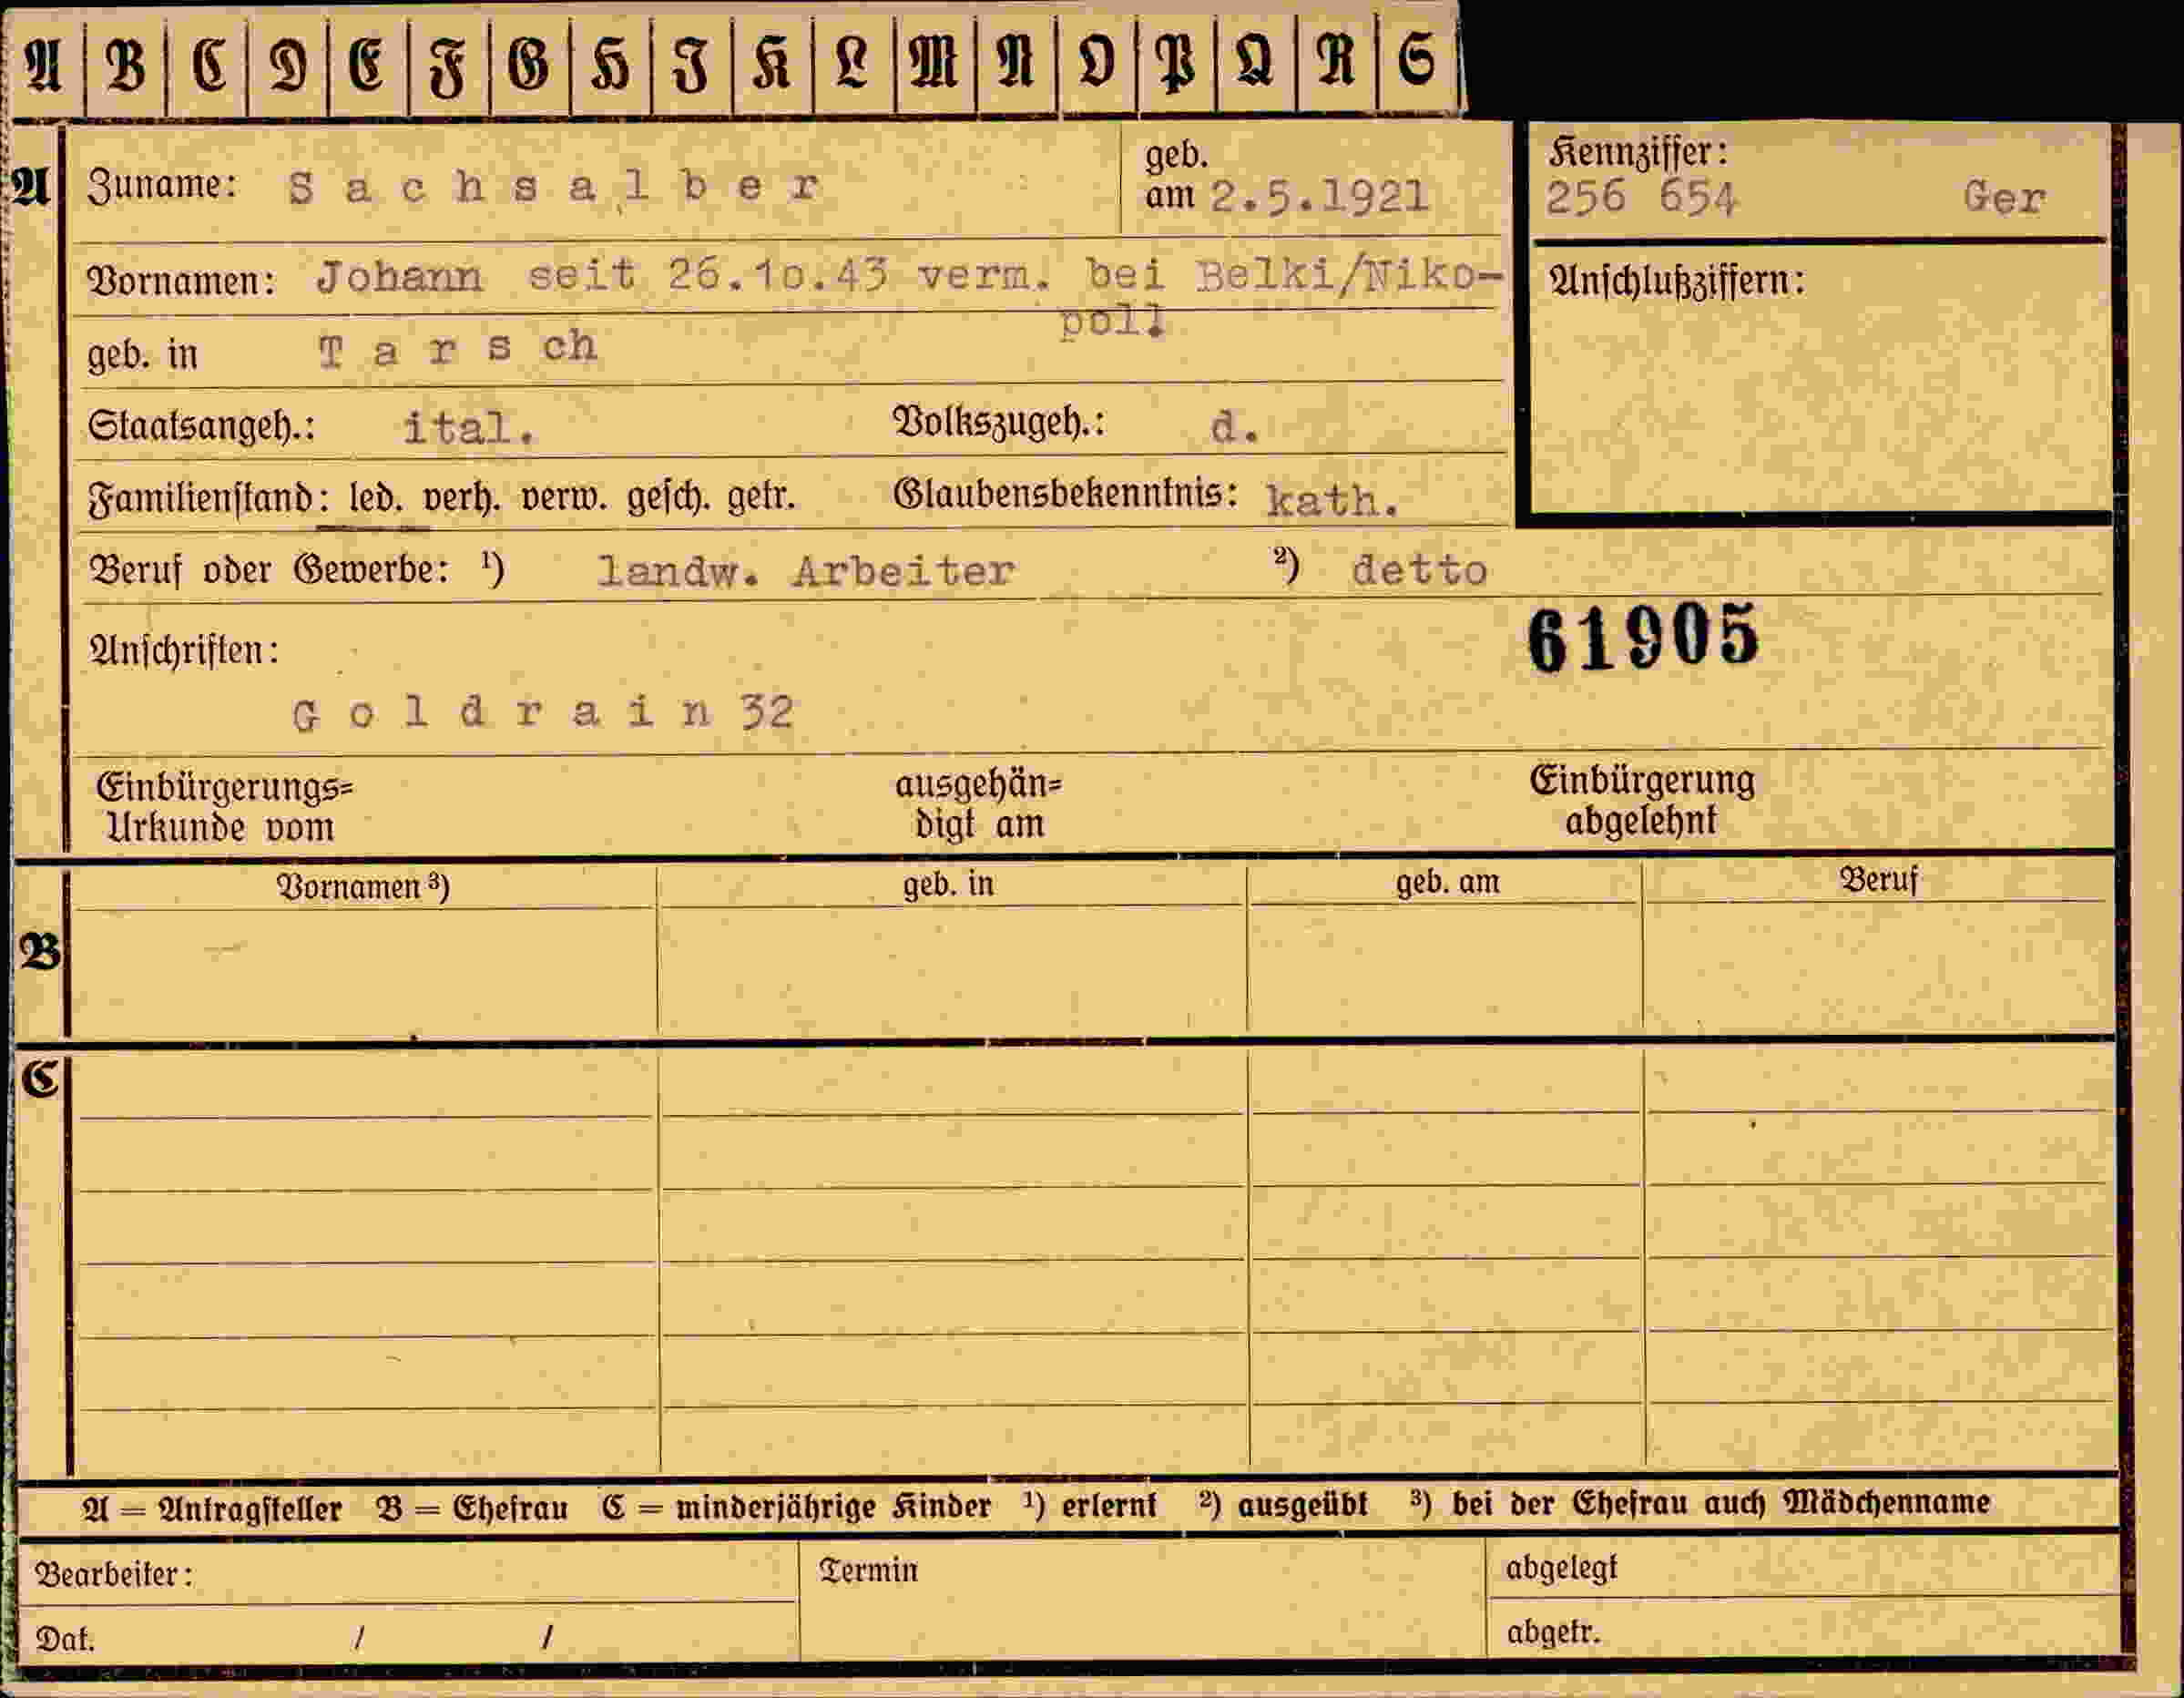 A B C D E F G H I K L M N O P Q R S
A Zuname: Sachsalber geb. am 2.5.1921 Kennziffer: 256 654 Ger
Vornamen: Johann seit 26.10.43 verm. bei Belki/Niko-
poll
Anschlußziffern:
geb. in Tarsch
Staatsangeh.: ital. Volkszugeh.: d.
Familienstand: led. verh. verw. gesch. getr. Glaubensbekenntnis: kath.
Beruf oder Gewerbe: ¹) landw. Arbeiter ²) detto
61905
Anschriften:
Goldrain 32
Einbürgerungs= ausgehän= Einbürgerung
Urkunde vom digt am abgelehnt
Vornamen ³) geb. in geb. am Beruf
B
C
A = Antragsteller B = Ehefrau C = minderjährige Kinder ¹) erlernt ²) ausgeübt ³) bei der Ehefrau auch Mädchenname
Bearbeiter: Termin abgelegt
Dat. / / abgetr.